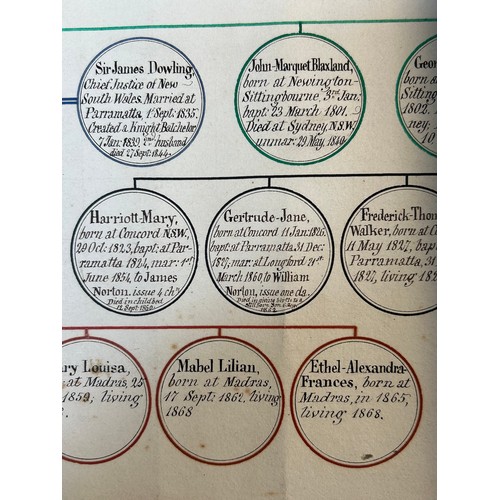 Sir James Dowling,
Chief Justice of New
South Wales. Married at
Parramatta, 1st Sept: 1835.
Created a Knight Batchelor
7 Jan: 1839. 2nd husband
died 27 Sept: 1844.
John-Marquet Blaxland,
born at Newington
Sittingbourne, 3rd Jan:
bapt: 23 March 1801.
Died at Sydney, N.S.W.
unmar: 29 May, 1840.
Geor
born
Sitting
1802.
ney:
10
Harriott-Mary,
born at Concord N.S.W.
29 Oct: 1823, bapt: at Par-
ramatta 1824, mar: 1st
June 1854, to James
Norton. issue 4 chn.
Died in childbed
12 Sept: 1860.
Gertrude-Jane,
born at Concord 11 Jan: 1826.
bapt: at Parramatta 31 Dec:
mar: at Longford 21st
March 1860, to William
Norton, issue one da.
Died in giving birth to a
1862
Frederick-Thom
Walker, born at Co
11 May 1827, bap
Parramatta, 31
1827, living 18
ry Louisa,
at Madras, 25
1859, living
8.
Mabel Lilian,
born at Madras,
17 Sept: 1862, living
1868
Ethel-Alexandra-
Frances, born at
Madras, in 1865,
living 1868.